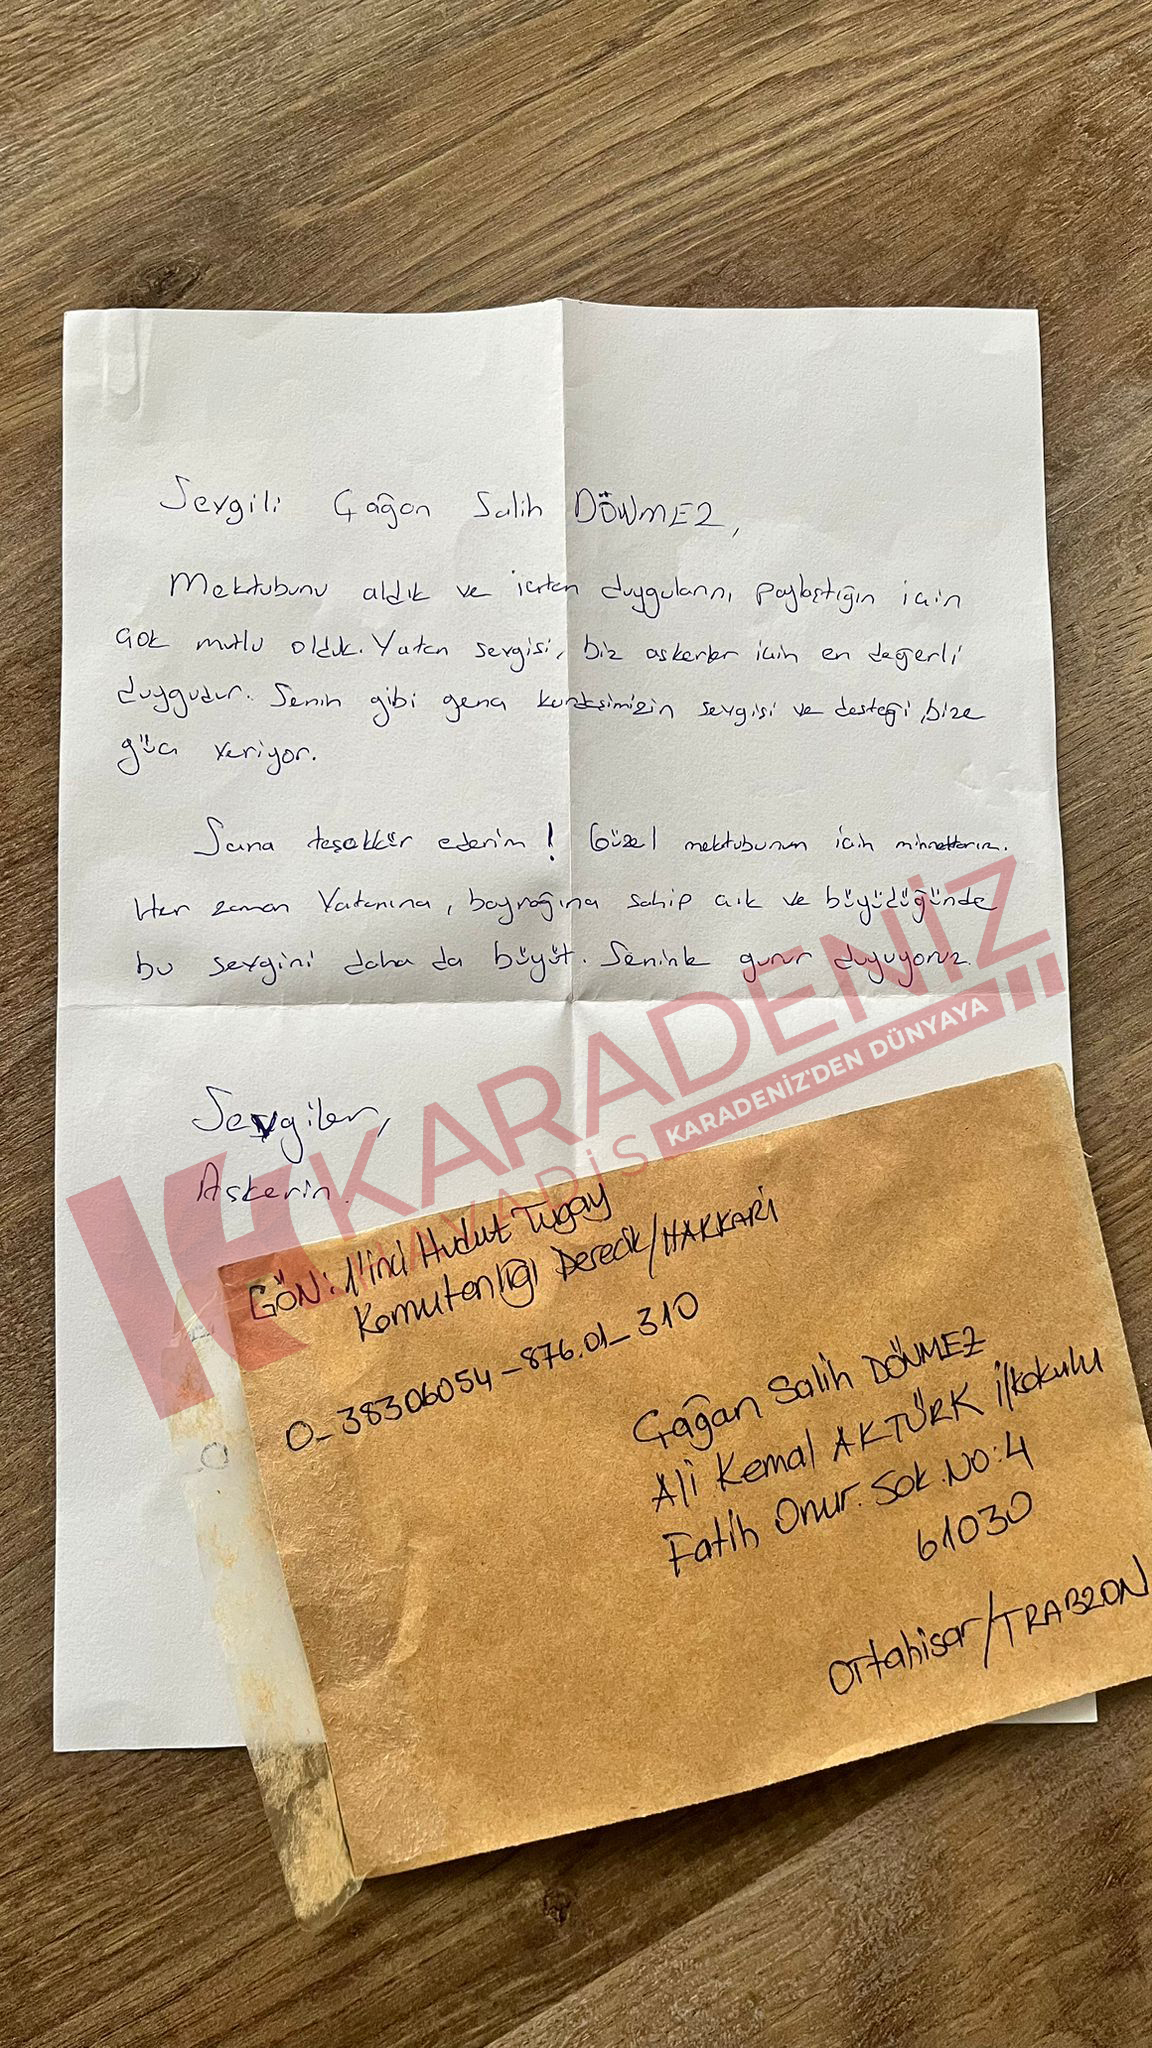 Sevgili Çağan Salih DÖNMEZ,
Mektubunu aldık ve içten duygularını paylaştığın için
çok mutlu olduk. Vatan sevgisi, biz askerler için en değerli
duygudur. Senin gibi genç kardeşimizin sevgisi ve desteği, bize
güç veriyor.
Sana teşekkür ederim! Güzel mektubunun için minnettarım.
Her zaman Vatanına, bayrağına sahip çık ve büyüdüğünde
bu sevgini daha da büyüt. Seninle gurur duyuyoruz.
Sevgiler,
Askerin.
KARADENİZ
KARADENİZ'DEN DÜNYAYA
GÖN: 1'inci Hudut Tugay
Komutanlığı Derecik/HAKKARİ
O_38306054_876.01_310
Çağan Salih DÖNMEZ
Ali Kemal AKTÜRK İlkokulu
Fatih Onur. Sok. No:4
61030
Ortahisar/TRABZON